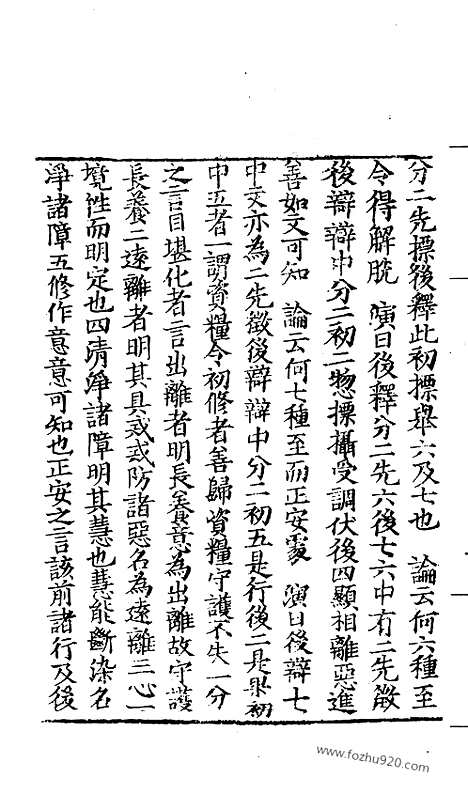 分二先摽後釋此初摽舉六及七也　論云何六種至
令得解脫　演曰後釋分二先六後七六中有二先徵
後辯辯中分二初二惣摽攝受調伏後四顯相離惡進
善如文可知　論云何七種至而正安處　演曰後辯七
中文亦為二先徵後辯辯中分二初五是行後二是果初
中五者一謂資糧令初修者善歸資糧守護不失一分
之言目堪化者言出離者明長養意為出離故守護
長養二遠離者明其具戒戒防諸惡名為遠離三心一
境性而明定也四清淨諸障明其慧也慧能斷染名
淨諸障五修作意意可知也正安之言該前諸行及後
www.fozhu920.com